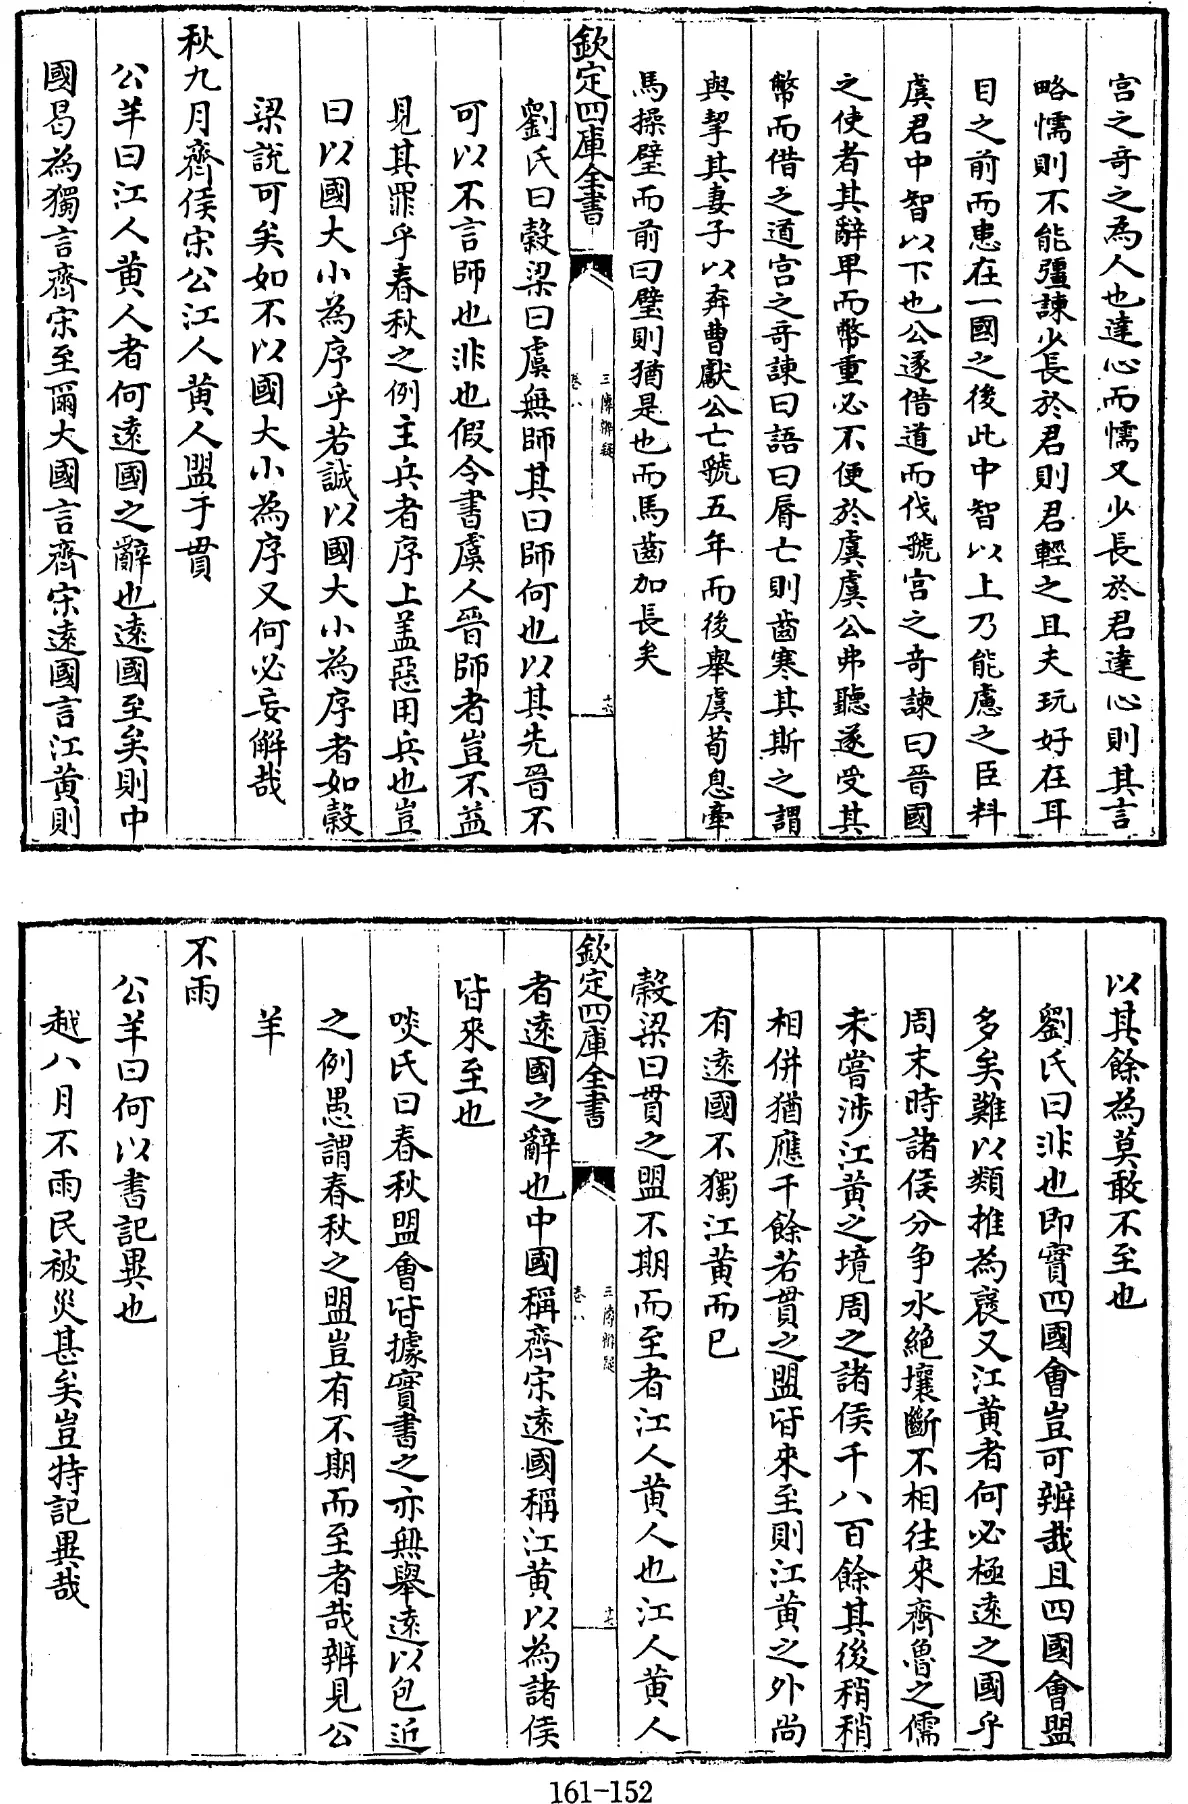 宫之奇之為人也達心而懦又少長於君達心則其言
略懦則不能彊諫少長於君則君輕之且夫玩好在耳
目之前而患在一國之後此中智以上乃能慮之臣料
虞君中智以下也公遂借道而伐虢宫之奇諫曰晉國
之使者其辭卑而幣重必不便於虞虞公弗聽遂受其
幣而借之道宫之奇諫曰語曰脣亡則齒寒其斯之謂
與挈其妻子以奔曹獻公亡虢五年而後舉虞荀息牽
馬操璧而前曰璧則猶是也而馬齒加長矣
欽定四庫全書
三傳辨疑
卷八
十六
劉氏曰榖梁曰虞無師其曰師何也以其先晉不
可以不言師也非也假令書虞人晉師者豈不益
見其罪乎春秋之例主兵者序上盖惡用兵也豈
曰以國大小為序乎若誠以國大小為序者如榖
梁説可矣如不以國大小為序又何必妄解哉
秋九月齊侯宋公江人黄人盟于貫
公羊曰江人黄人者何逺國之辭也逺國至矣則中
國曷為獨言齊宋至爾大國言齊宋逺國言江黄則
以其餘為莫敢不至也
劉氏曰非也即實四國會豈可辨哉且四國會盟
多矣難以類推為襃又江黄者何必極逺之國乎
周末時諸侯分争水絶壤斷不相往來齊魯之儒
未嘗涉江黄之境周之諸侯千八百餘其後稍稍
相併猶應千餘若貫之盟皆來至則江黄之外尚
有逺國不獨江黄而已
榖梁曰貫之盟不期而至者江人黄人也江人黄人
欽定四庫全書
三傳辨疑
卷八
十七
者逺國之辭也中國稱齊宋逺國稱江黄以為諸侯
皆來至也
啖氏曰春秋盟會皆據實書之亦無舉逺以包近
之例愚謂春秋之盟豈有不期而至者哉辨見公
羊
不雨
公羊曰何以書記異也
越八月不雨民被災甚矣豈特記異哉
161-152